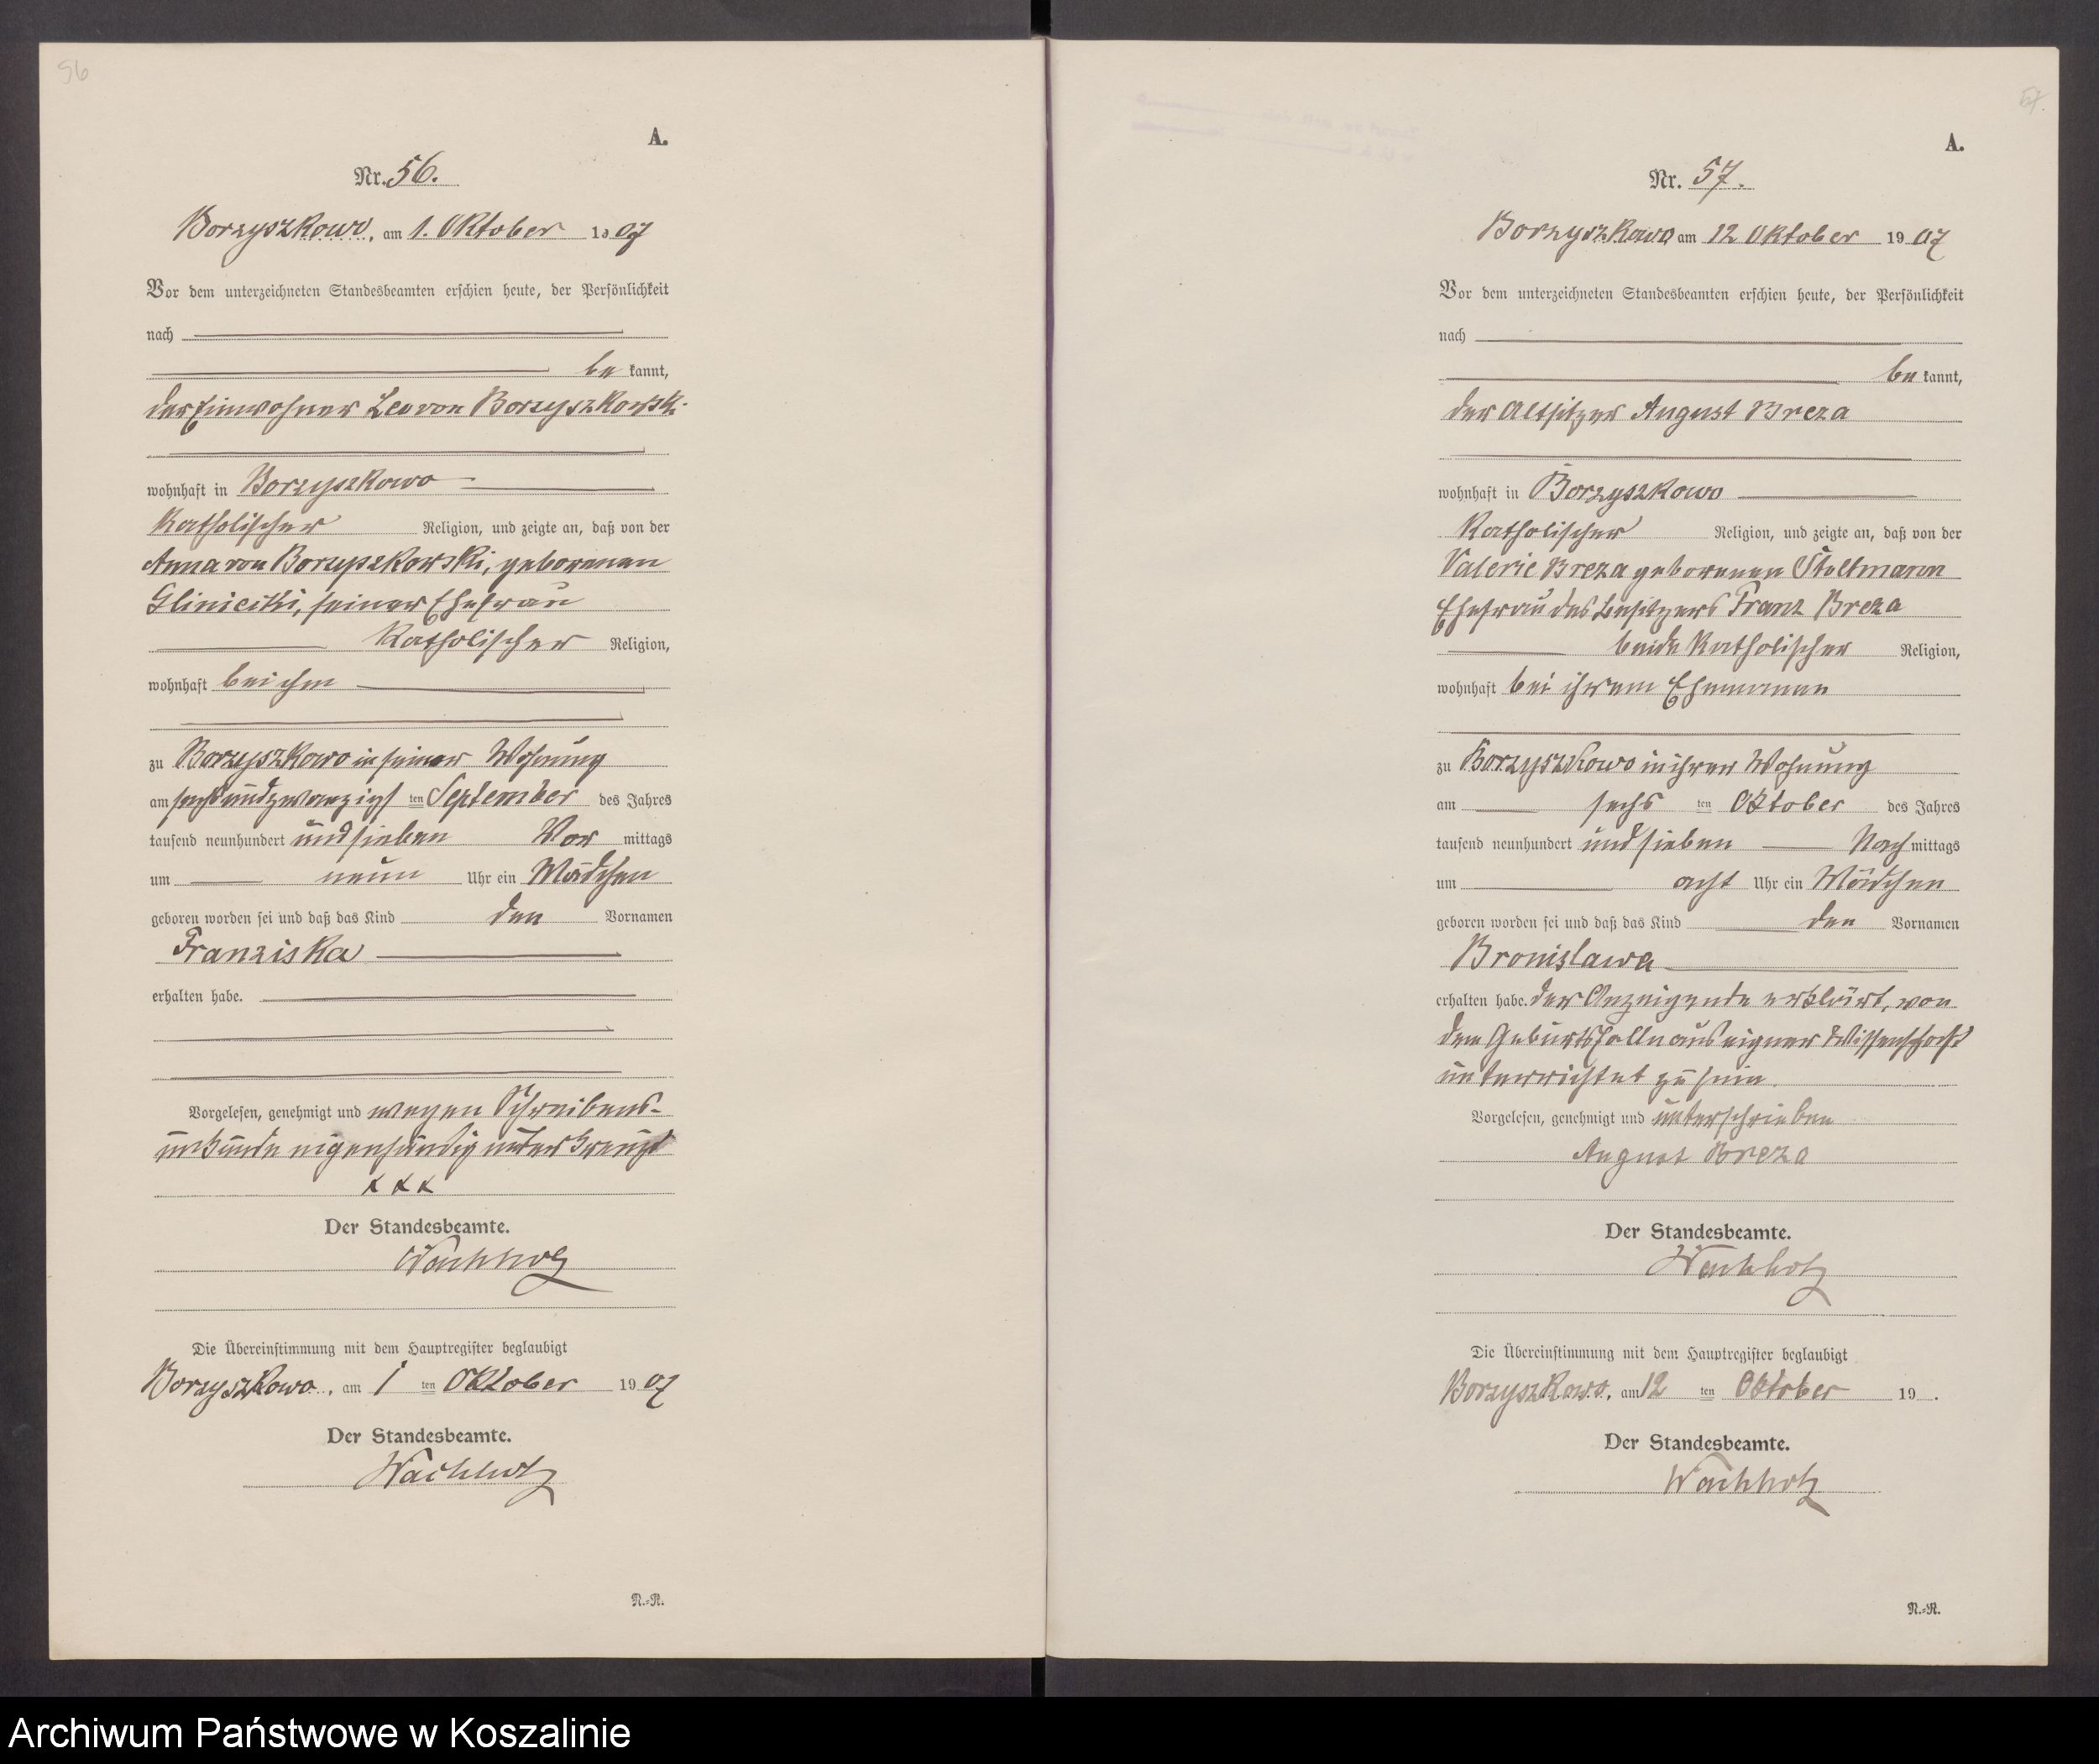 56
A.
Nr. 56.
Borzyszkowo, am 1. Oktober 1907
Vor dem unterzeichneten Standesbeamten erschien heute, der Persönlichkeit
nach
be kannt,
der Einwohner Leo von Borzyszkowski
wohnhaft in Borzyszkowo
katholischer Religion, und zeigte an, daß von der
Anna von Borzyszkowski, geborenen
Glinicki, seiner Ehefrau
katholischer Religion,
wohnhaft bei ihm
zu Borzyszkowo in seiner Wohnung
am sechsundzwanzigs ten September des Jahres
tausend neunhundert und sieben Vor mittags
um neun Uhr ein Mädchen
geboren worden sei und daß das Kind den Vornamen
Franziska
erhalten habe.
Vorgelesen, genehmigt und wegen Schreibens-
unkunde eigenhändig unterkreuzt
xxx
Der Standesbeamte.
Wachholz
Die Übereinstimmung mit dem Hauptregister beglaubigt
Borzyszkowo, am 1 ten Oktober 1907
Der Standesbeamte.
Wachholz
N.=R.
57.
A.
Nr. 57.
Borzyszkowo am 12 Oktober 1907
Vor dem unterzeichneten Standesbeamten erschien heute, der Persönlichkeit
nach
be kannt,
der Altsitzer August Breza
wohnhaft in Borzyszkowo
katholischer Religion, und zeigte an, daß von der
Valerie Breza geborenen Stoltmann
Ehefrau des Besitzers Franz Breza
beide katholischer Religion,
wohnhaft bei ihrem Ehemanne
zu Borzyszkowo in ihrer Wohnung
am sechs ten Oktober des Jahres
tausend neunhundert und sieben Nach mittags
um acht Uhr ein Mädchen
geboren worden sei und daß das Kind den Vornamen
Bronislawa
erhalten habe. Der Anzeigende erklärt, von
dem Geburtsfalle aus eigner Wissenschaft
unterrichtet zu sein.
Vorgelesen, genehmigt und unterschrieben
August Breza
Der Standesbeamte.
Wachholz
Die Übereinstimmung mit dem Hauptregister beglaubigt
Borzyszkowo, am 12 ten Oktober 19 .
Der Standesbeamte.
Wachholz
N.=R.
Archiwum Państwowe w Koszalinie